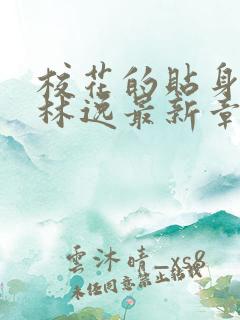 校花的貼身
林逸最新章
雲沐晴_xs8
未经同意禁止转载